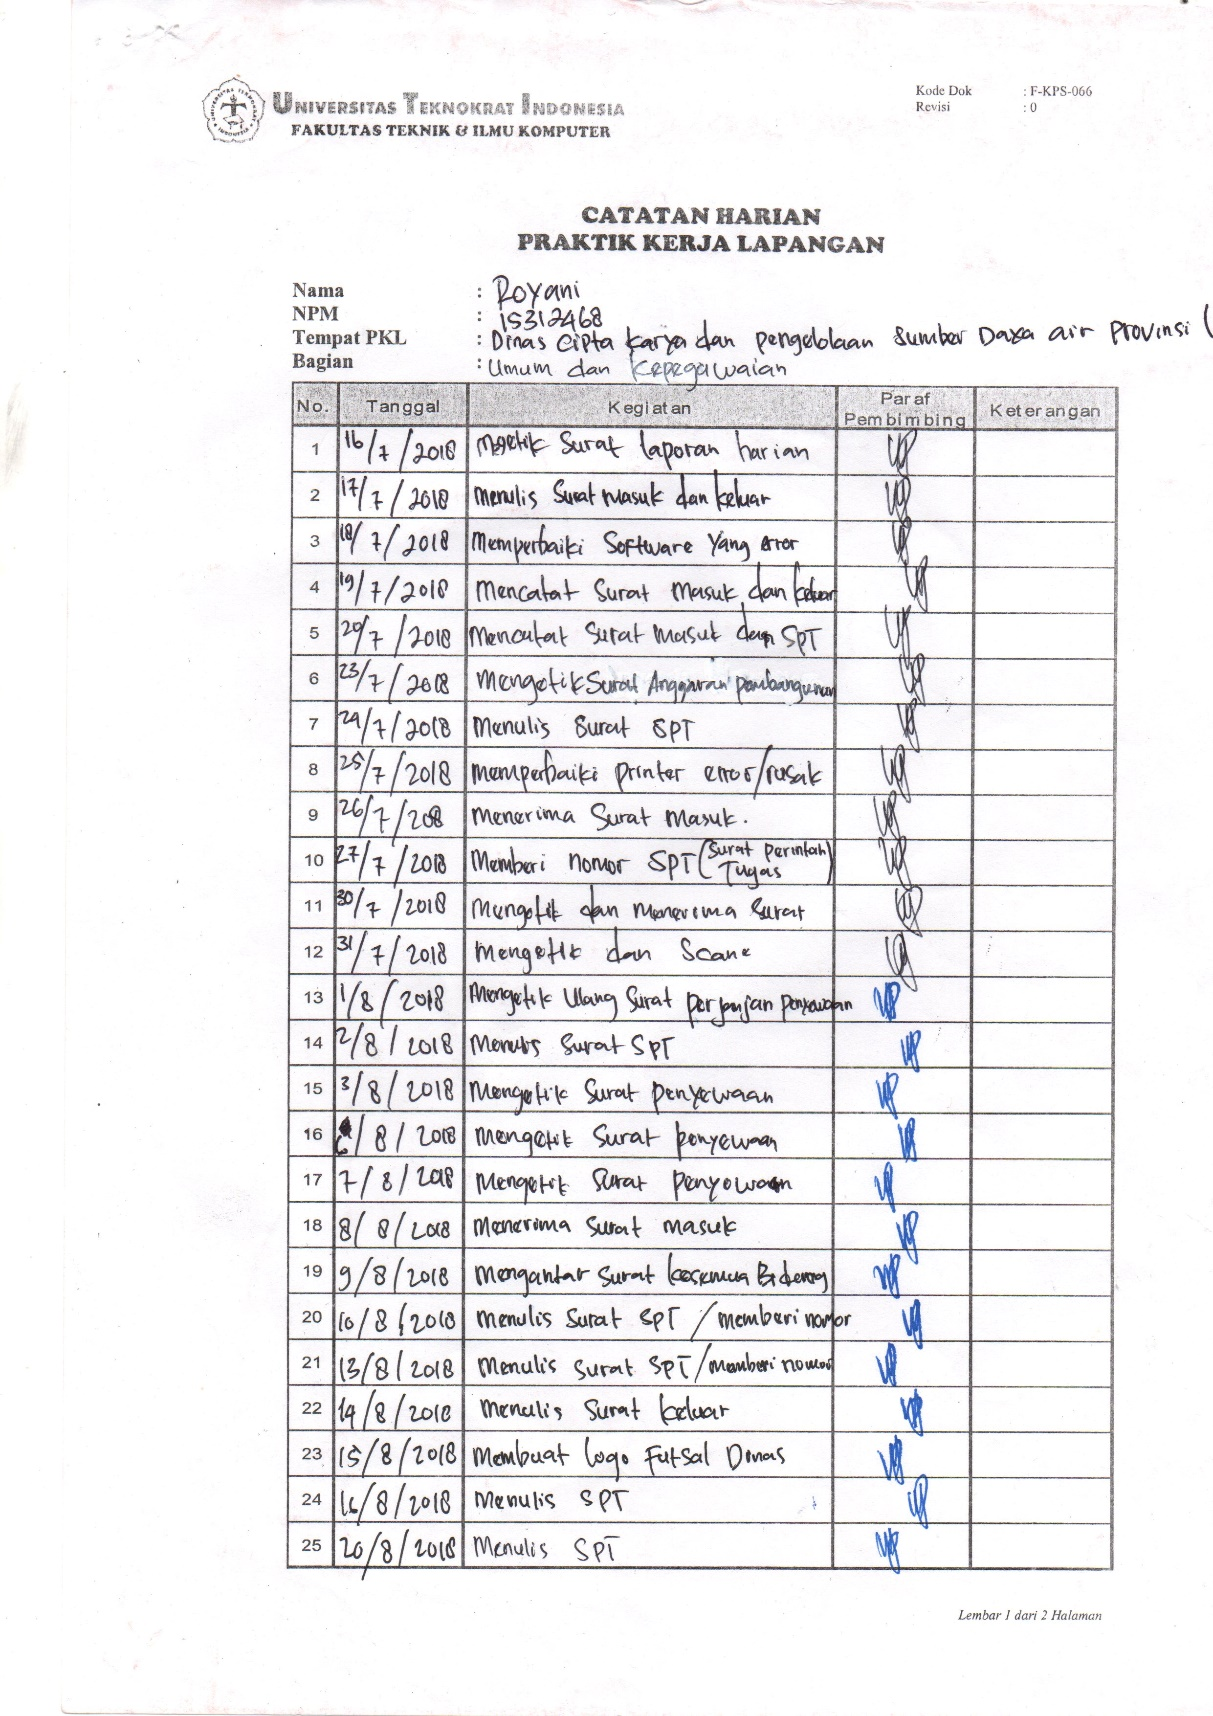 UNIVERSITAS TEKNOKRAT INDONESIA
FAKULTAS TEKNIK & ILMU KOMPUTER
Kode Dok : F-KPS-066
Revisi : 0
CATATAN HARIAN
PRAKTIK KERJA LAPANGAN
Nama : Royani
NPM : 15312468
Tempat PKL : Dinas Cipta Karya dan Pengelolaan Sumber Daya air Provinsi
Bagian : Umum dan Kepegawaian
No. Tanggal Kegiatan Paraf Pembimbing Keterangan
1 16/7/2018 Mgetik Surat laporan harian
2 17/7/2018 Menulis Surat Masuk dan keluar
3 18/7/2018 Memperbaiki Software Yang error
4 19/7/2018 Mencatat Surat Masuk dan keluar
5 20/7/2018 Mencatat Surat Masuk dan SPT
6 23/7/2018 Mengetik Surat Anggaran pembangunan
7 24/7/2018 Menulis Surat SPT
8 25/7/2018 Memperbaiki printer error/rusak
9 26/7/208 Menerima Surat Masuk.
10 27/7/2018 Memberi nomor SPT (Surat Perintah Tugas)
11 30/7/2018 Mengetik dan Menerima Surat
12 31/7/2018 Mengetik dan Scane
13 1/8/2018 Mengetik Ulang Surat perjanjian penyewaan
14 2/8/2018 Menulis Surat SPT
15 3/8/2018 Mengetik Surat penyewaan
16 6/8/2018 Mengetik Surat penyewaan
17 7/8/2018 Mengetik Surat penyewaan
18 8/8/2018 Menerima Surat masuk
19 9/8/2018 Mengantar Surat kesemua Bidang
20 10/8/2018 Menulis Surat SPT / memberi nomor
21 13/8/2018 Menulis Surat SPT/memberi nomor
22 14/8/2018 Menulis Surat keluar
23 15/8/2018 Membuat logo Futsal Dinas
24 16/8/2018 Menulis SPT
25 20/8/2018 Menulis SPT
Lembar 1 dari 2 Halaman